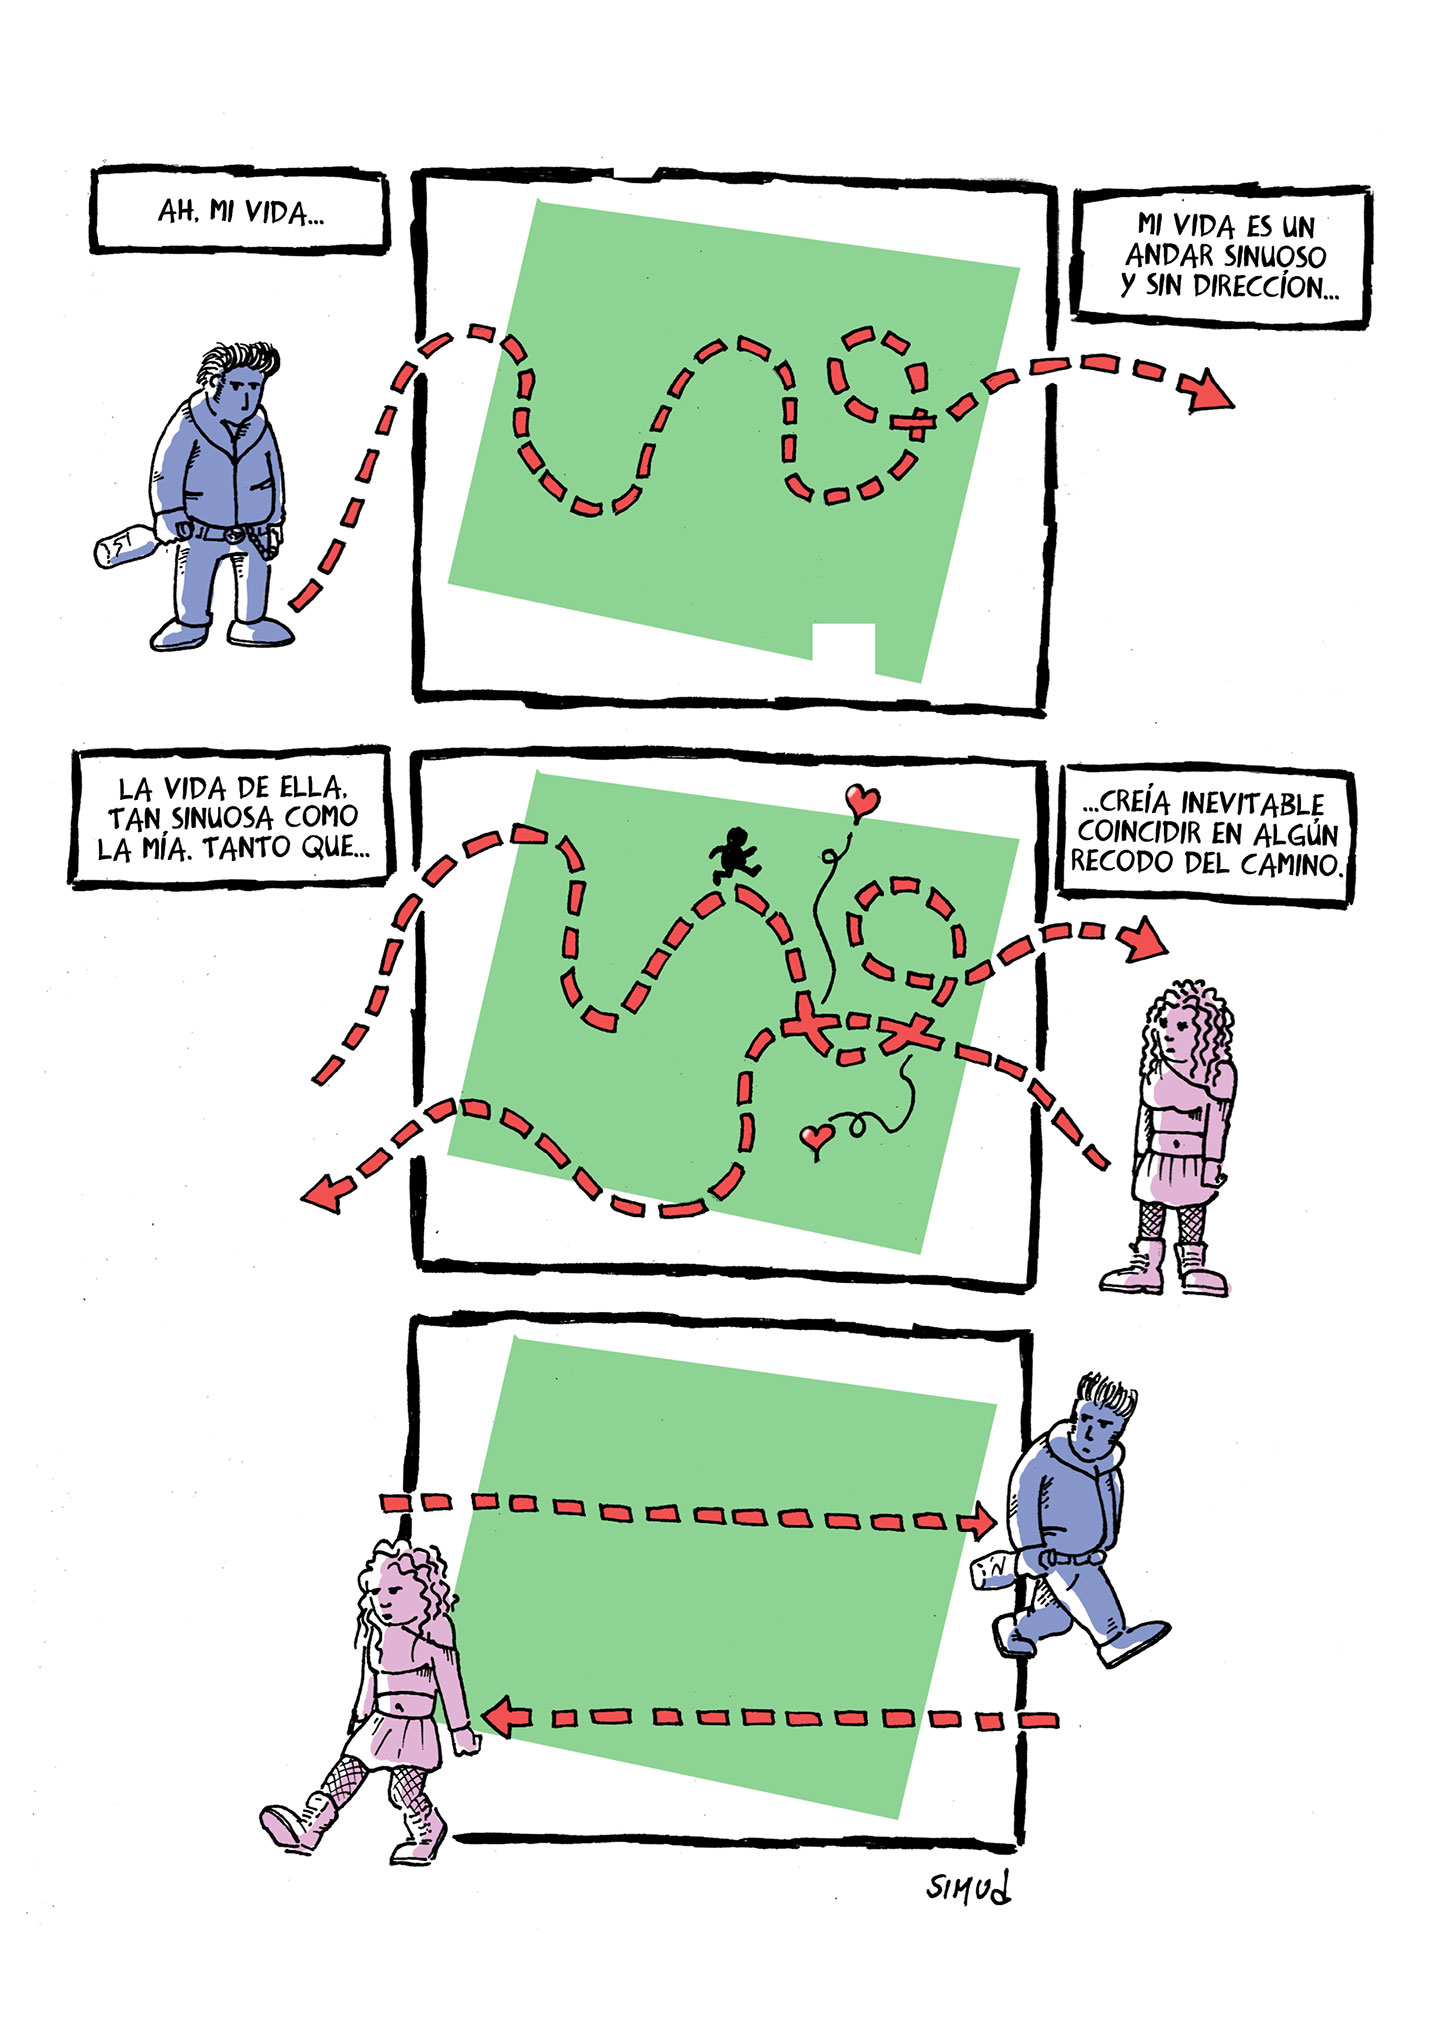 AH, MI VIDA...
MI VIDA ES UN
ANDAR SINUOSO
Y SIN DIRECCÍON...
LA VIDA DE ELLA,
TAN SINUOSA COMO
LA MÍA. TANTO QUE...
...CREÍA INEVITABLE
COINCIDIR EN ALGÚN
RECODO DEL CAMINO.
SIMUd